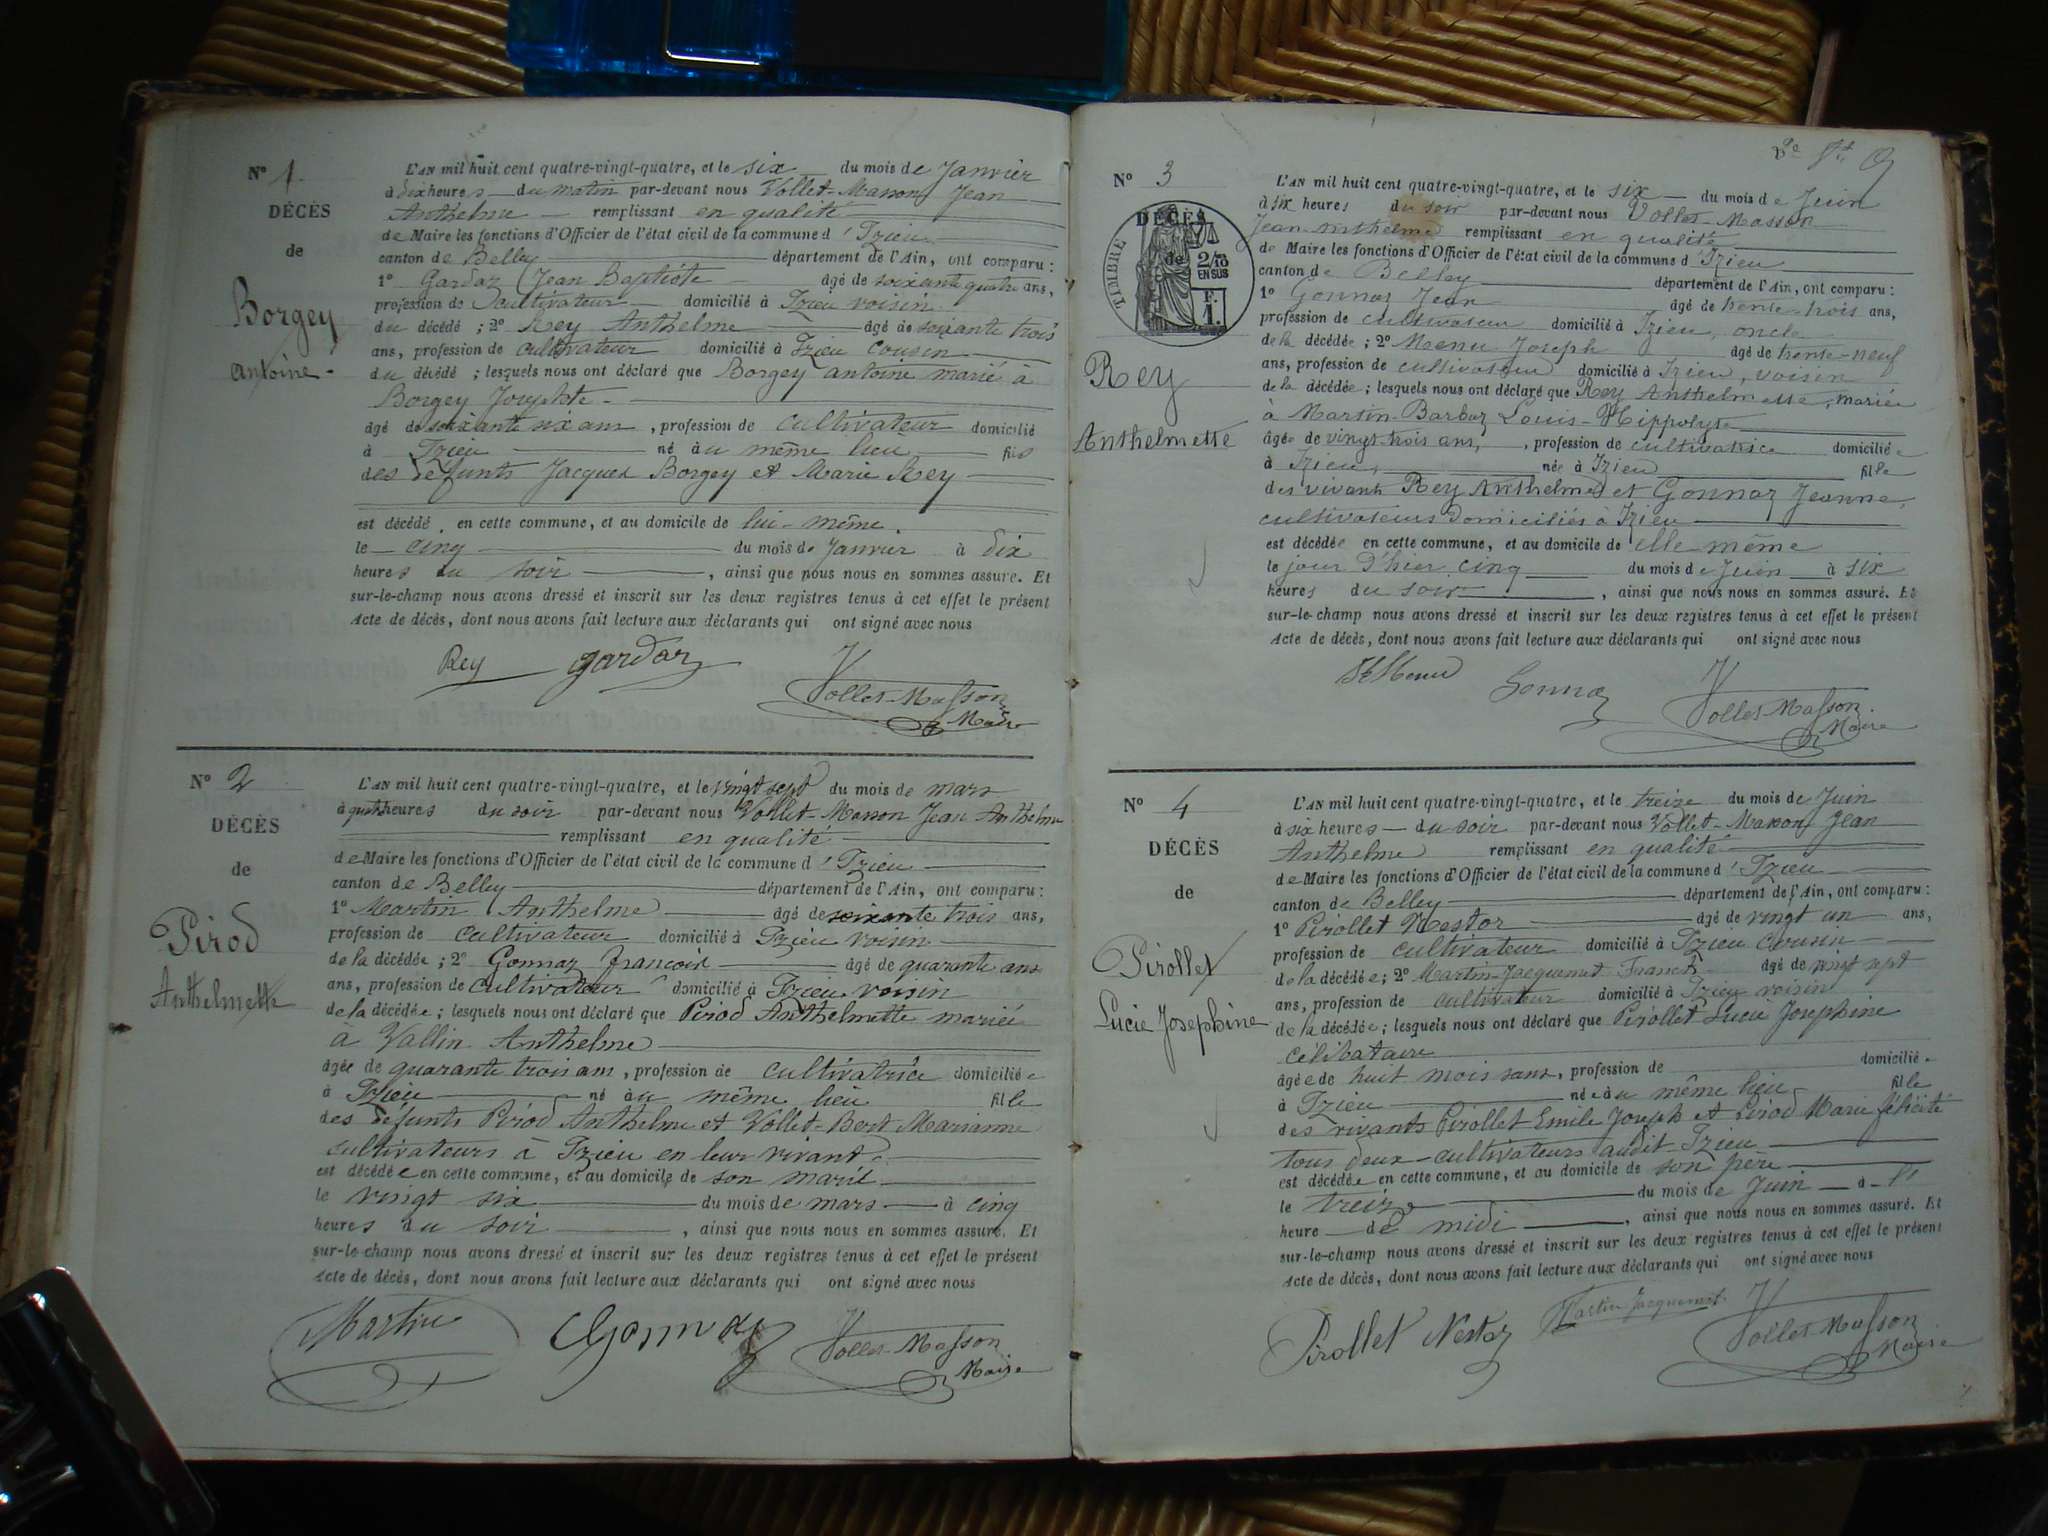 N° 1.
DÉCÈS
de
Borgey
Antoine
L'AN mil huit cent quatre-vingt-quatre, et le six du mois de Janvier
à dix heures du matin par-devant nous Vollet-Masson Jean
Anthelme remplissant en qualité
de Maire les fonctions d'Officier de l'état civil de la commune d'Izieu
canton de Belley département de l'Ain, ont comparu :
1° Gardaz Jean Baptiste âgé de soixante quatre ans,
profession de cultivateur domicilié à Izieu voisin
du décédé ; 2° Rey Anthelme âgé de soixante trois
ans, profession de cultivateur domicilié à Izieu cousin
du décédé ; lesquels nous ont déclaré que Borgey antoine marié à
Borgey Josephte
âgé de soixante six ans, profession de cultivateur domicilié
à Izieu né au même lieu fils
des défunts Jacques Borgey et Marie Rey
est décédé en cette commune, et au domicile de lui-même.
le cinq du mois de Janvier à dix
heures du soir, ainsi que nous nous en sommes assuré. Et
sur-le-champ nous avons dressé et inscrit sur les deux registres tenus à cet effet le présent
Acte de décès, dont nous avons fait lecture aux déclarants qui ont signé avec nous
Rey gardaz
Vollet-Masson
Maire
N° 2
DÉCÈS
de
Pirod
Anthelmette
L'AN mil huit cent quatre-vingt-quatre, et le vingt sept du mois de mars
à quatre heures du soir par-devant nous Vollet-Masson Jean Anthelme
remplissant en qualité
de Maire les fonctions d'Officier de l'état civil de la commune d'Izieu
canton de Belley département de l'Ain, ont comparu :
1° Martin Anthelme âgé de soixante trois ans,
profession de cultivateur domicilié à Izieu voisin
de la décédée ; 2° Gonnaz françois âgé de quarante ans
ans, profession de cultivateur domicilié à Izieu voisin
de la décédée ; lesquels nous ont déclaré que Pirod Anthelmette mariée
à Vallin Anthelme
âgée de quarante trois ans, profession de cultivatrice domiciliée
à Izieu né au même lieu fille
des défunts Pirod Anthelme et Vollet-Bert Marianne
cultivateurs à Izieu en leur vivant
est décédée en cette commune, et au domicile de son marit
le vingt six du mois de mars à cinq
heures du soir, ainsi que nous nous en sommes assuré. Et
sur-le-champ nous avons dressé et inscrit sur les deux registres tenus à cet effet le présent
Acte de décès, dont nous avons fait lecture aux déclarants qui ont signé avec nous
Martin Gonnaz
Vollet-Masson
Maire
N° 3
DÉCÈS
de
TIMBRE
2/10
EN SUS
F.
1.
Rey
Anthelmette
L'AN mil huit cent quatre-vingt-quatre, et le six du mois de Juin
à six heures du soir par-devant nous Vollet-Masson
Jean-Anthelme remplissant en qualité
de Maire les fonctions d'Officier de l'état civil de la commune d'Izieu
canton de Belley département de l'Ain, ont comparu :
1° Gonnaz Jean âgé de trente-trois ans,
profession de cultivateur domicilié à Izieu, oncle
de la décédée ; 2° Menu Joseph âgé de trente-neuf
ans, profession de cultivateur domicilié à Izieu, voisin
de la décédée ; lesquels nous ont déclaré que Rey Anthelmette, mariée
à Martin-Barbaz Louis-Hippolyte
âgée de vingt-trois ans, profession de cultivatrice domiciliée
à Izieu, née à Izieu fille
des vivants Rey Anthelme et Gonnaz Jeanne,
cultivateurs domiciliés à Izieu
est décédée en cette commune, et au domicile de elle-même
le jour d'hier cinq du mois de Juin à six
heures du soir, ainsi que nous nous en sommes assuré. Et
sur-le-champ nous avons dressé et inscrit sur les deux registres tenus à cet effet le présent
Acte de décès, dont nous avons fait lecture aux déclarants qui ont signé avec nous
Menu Gonnaz
Vollet-Masson
Maire
N° 4
DÉCÈS
de
Pirollet
Lucie Josephine
L'AN mil huit cent quatre-vingt-quatre, et le treize du mois de Juin
à six heures du soir par-devant nous Vollet-Masson Jean
Anthelme remplissant en qualité
de Maire les fonctions d'Officier de l'état civil de la commune d'Izieu
canton de Belley département de l'Ain, ont comparu :
1° Pirollet Nestor âgé de vingt un ans,
profession de cultivateur domicilié à Izieu Cousin
de la décédée ; 2° Martin-Jacquemet Francis âgé de vingt sept
ans, profession de cultivateur domicilié à Izieu voisin
de la décédée ; lesquels nous ont déclaré que Pirollet Lucie Josephine
célibataire
âgée de huit mois sans, profession de domiciliée
à Izieu née au même lieu fille
des vivants Pirollet Emile Joseph et Pirod Marie félicité
tous deux cultivateurs audit Izieu
est décédée en cette commune, et au domicile de son père
le treize du mois de Juin à
heure de midi, ainsi que nous nous en sommes assuré. Et
sur-le-champ nous avons dressé et inscrit sur les deux registres tenus à cet effet le présent
Acte de décès, dont nous avons fait lecture aux déclarants qui ont signé avec nous
Pirollet Nestor Martin-Jacquemet
Vollet-Masson
Maire